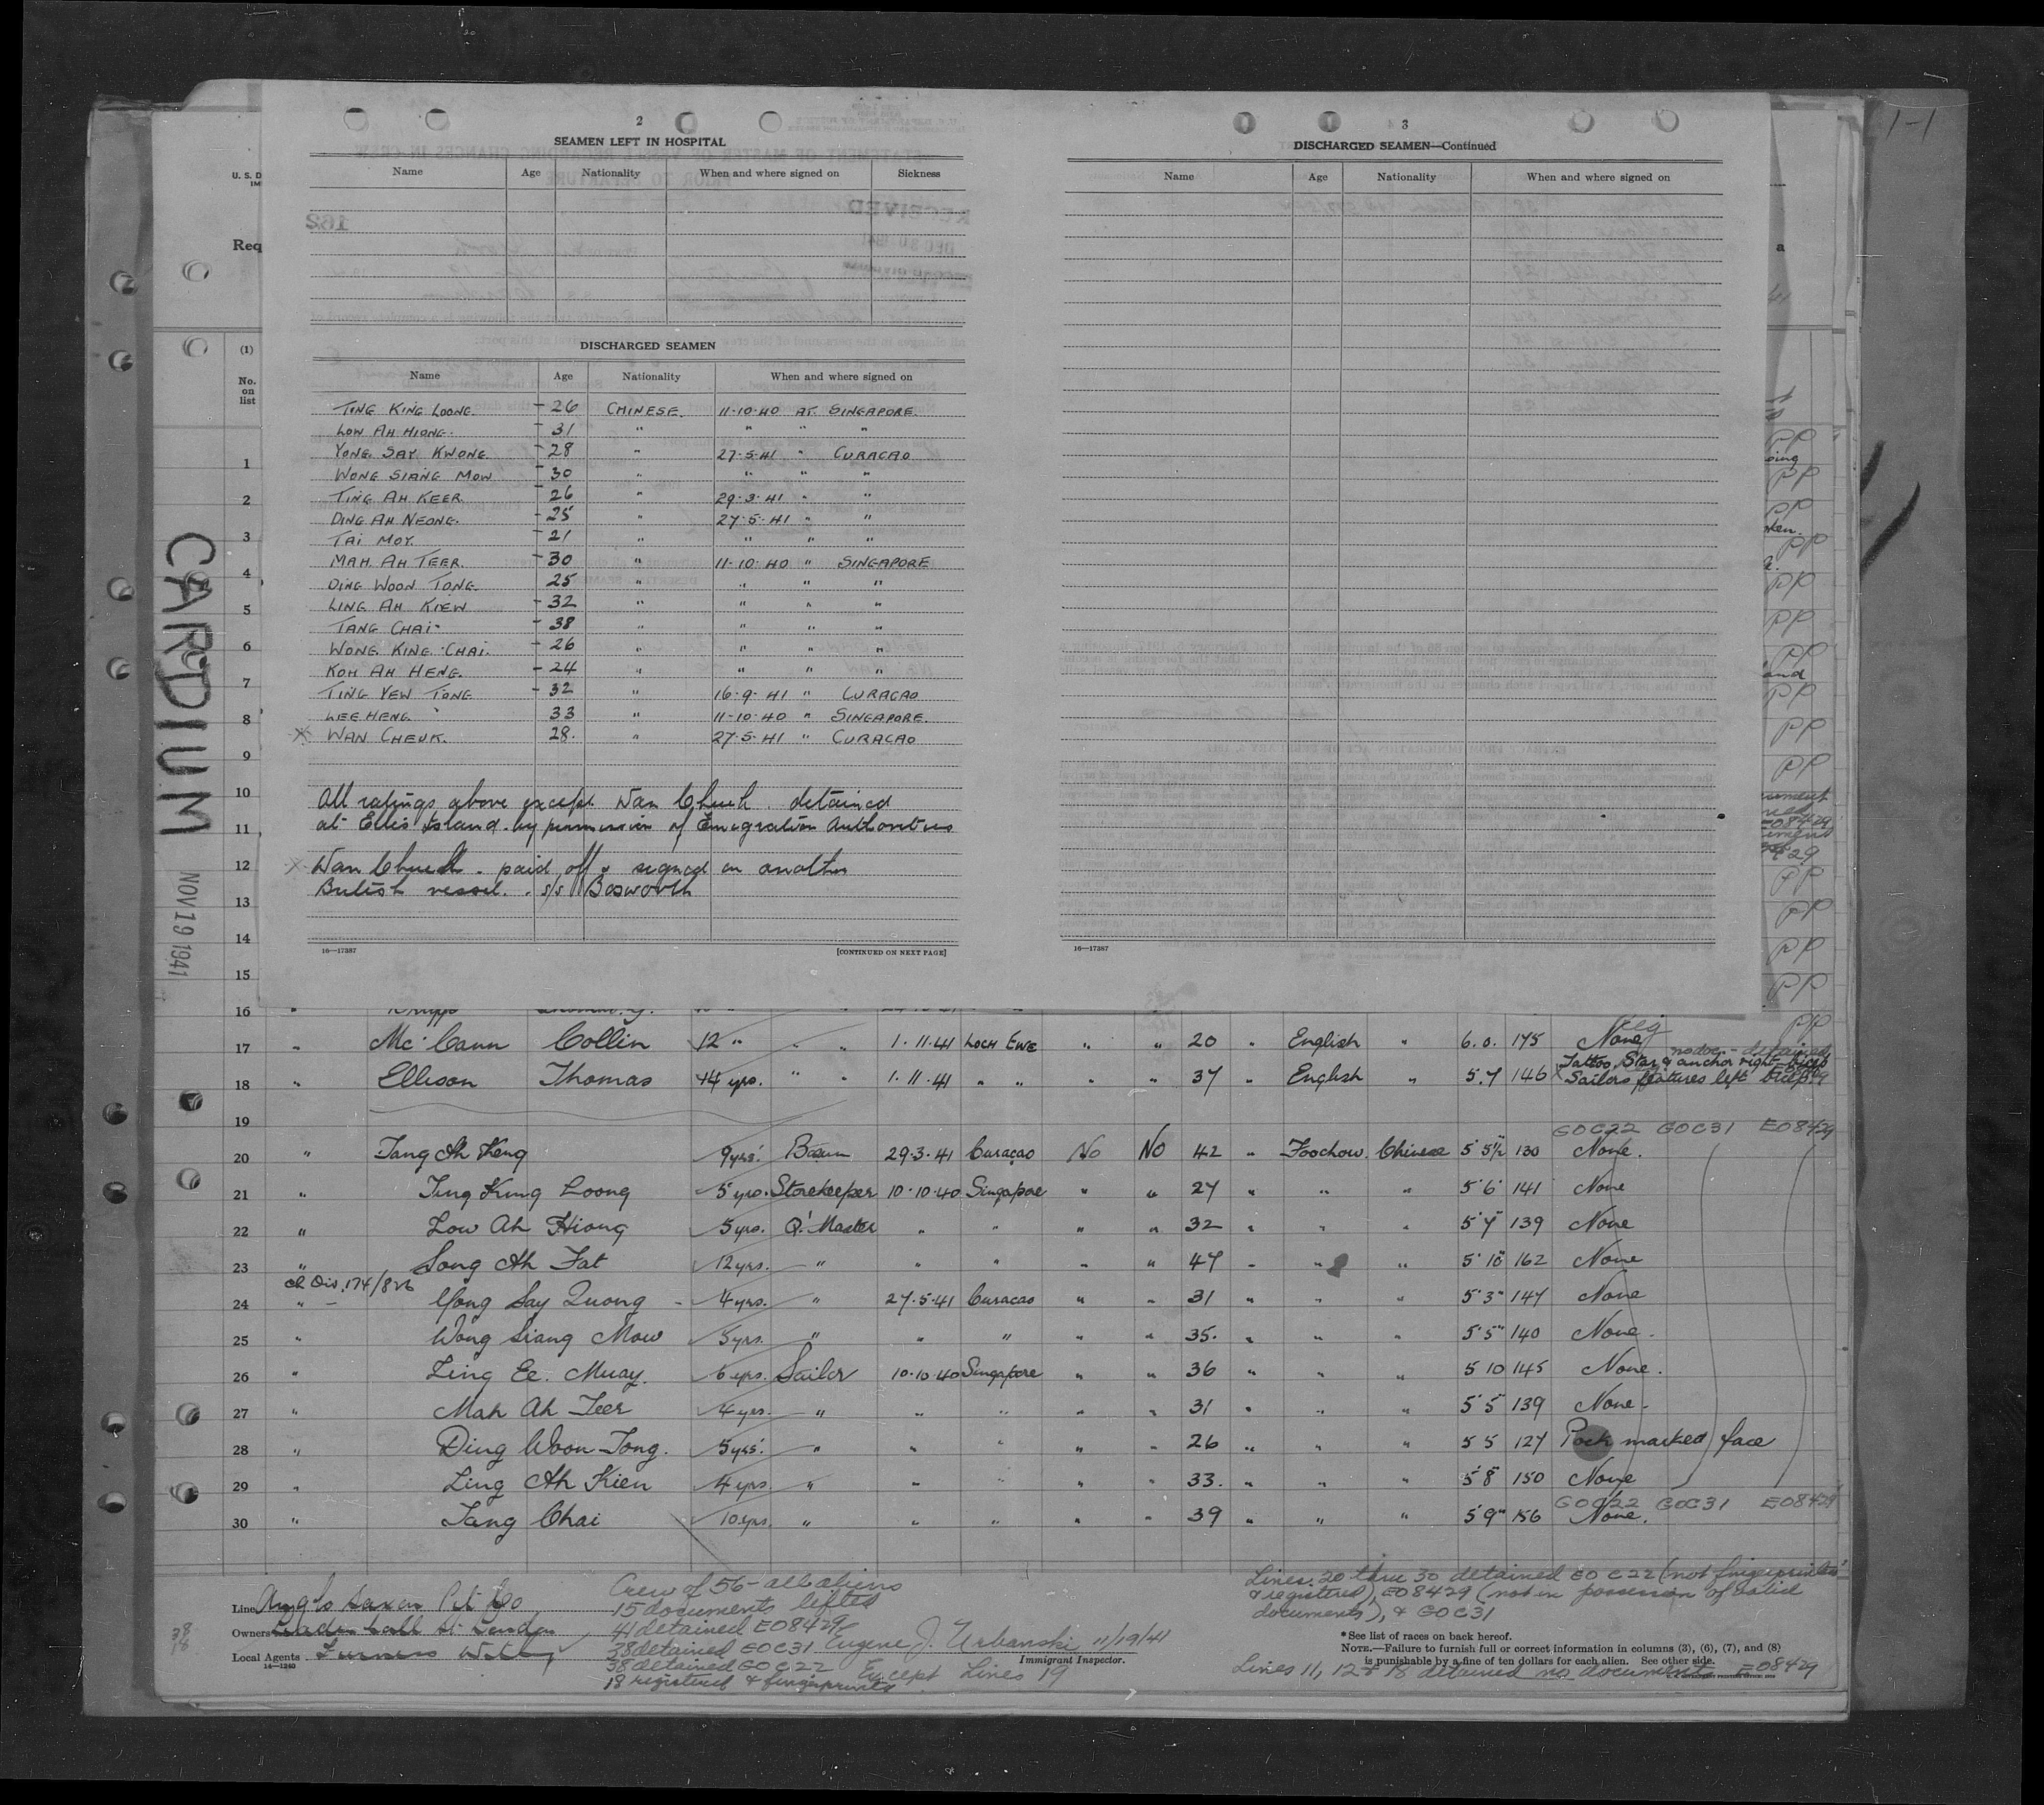 1-1
2
SEAMEN LEFT IN HOSPITAL
Name Age Nationality When and where signed on Sickness
DISCHARGED SEAMEN
Name Age Nationality When and where signed on
TING KING LOONG. - 26 CHINESE. 11-10-40 AT SINGAPORE.
LOW AH HIONG. - 31 " " " "
YONG SAY KWONG - 28 " 27-5-41 " CURACAO
WONG SIANG MOW - 30 " " " "
TING AH KEER - 26 " 29-3-41 " "
DING AH NEONG. - 25 " 27-5-41 " "
TAI MOY. - 21 " " " "
MAH AH TEER. - 30 " 11-10-40 " SINGAPORE
DING WOON TONG. 25 " " " "
LING AH KIEW - 32 " " " "
TANG CHAI - 38 " " " "
WONG KING CHAI. - 26 " " " "
KOH AH HENG. - 24 " " " "
TING YEW TONG - 32 " 16-9-41 " CURACAO
LEE HENG 33 " 11-10-40 " SINGAPORE.
X WAN CHEUK. 28. " 27-5-41 " CURACAO
All ratings above except Wan Cheuk detained
at Ellis Island by permission of Emigration Authorities
X Wan Cheuk - paid off & signed on another
British vessel. s/s Bosworth
16—17387 [CONTINUED ON NEXT PAGE]
3
DISCHARGED SEAMEN—Continued
Name Age Nationality When and where signed on
16—17387
U. S. D
IM
Req
a
(1)
No.
on
list
1
2
3
4
5
6
7
8
9
10
11
12
13
14
15
16
CARDIUM
NOV 19 1941
17 " Mc Cann Collin 12 " " " 1.11.41 LOCH EWE " " 20 " English " 6.0. 175 None PP
18 " Ellison Thomas 14 yrs. " " 1.11.41 " " " " 37 " English " 5.7 146 Tattoo, Star & anchor right bicep
Sailors features left bicep
19
GOC22 GOC31 E08429
20 " Tang Ah Keng 9yrs. Bosun 29.3.41 Curaçao No No 42 " Foochow. Chinese 5 5½ 130 None.
21 " Ting King Loong 5 yrs. Storekeeper 10.10.40 Singapore " " 27 " " " 5'6" 141 None
22 " Low Ah Hiong 5yrs. Q. Master " " " " 32 " " " 5'7" 139 None
23 " Song Ah Fat 12yrs. " " " " " 47 " " " 5'10" 162 None
ch Dis. 174/826
24 " Yong Say Quong - 4 yrs. " 27.5.41 Curacao " " 31 " " " 5'3" 147 None
25 " Wong Siang Mow 5yrs. " " " " " 35. " " " 5'5" 140 None.
26 " Ling Ee Muay. 6 yrs. Sailor 10.10.40 Singapore " " 36 " " " 5 10 145 None.
27 " Mah Ah Teer 4 yrs. " " " " " 31 " " " 5 5 139 None.
28 " Ding Woon Tong. 5yrs. " " " " " 26 " " " 5 5 127 Pock marked face
29 " Ling Ah Kien 4 yrs. " " " " " 33. " " " 5 8 150 None
GOC22 GOC31 E08429
30 " Tang Chai 10 yrs. " " " " " 39 " " " 5 9" 156 None.
Line Anglo Saxon Pet Co
Owners Leadenhall St. London
Local Agents Furness Withy
14—1240
38
18
Crew of 56 - all aliens
15 documents lifted
41 detained E08429
38 detained EOC31 Eugene J. Urbanski 11/19/41
Immigrant Inspector.
38 detained GOC22 Except Lines 19
18 registered & fingerprinted
Lines 20 thru 30 detained EOC22 (not fingerprinted
& registered), E08429 (not in possession of valid
documents), & GOC31
*See list of races on back hereof.
NOTE.—Failure to furnish full or correct information in columns (3), (6), (7), and (8)
is punishable by a fine of ten dollars for each alien. See other side.
Lines 11, 12 & 18 detained no documents E08429